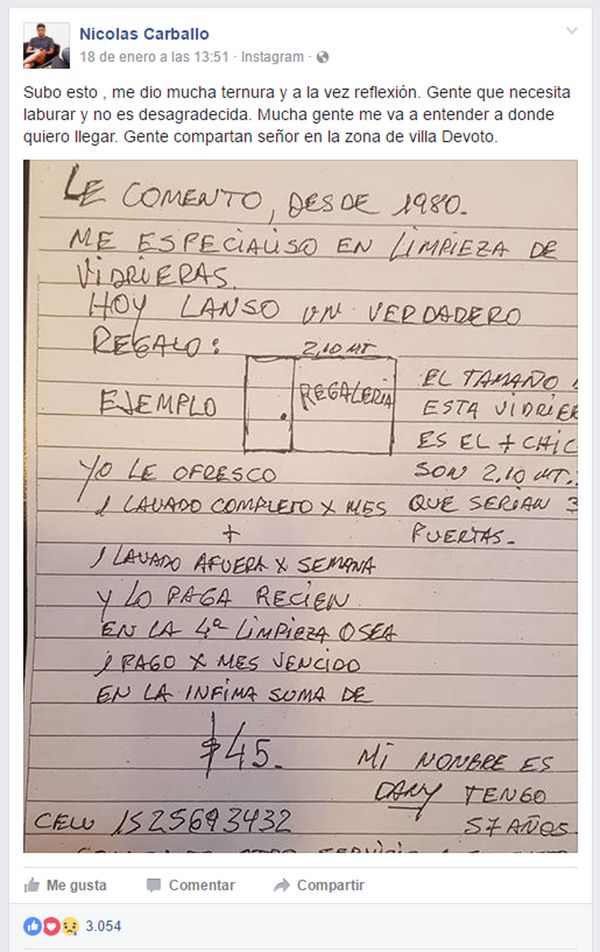 Nicolas Carballo
18 de enero a las 13:51 · Instagram ·
Subo esto , me dio mucha ternura y a la vez reflexión. Gente que necesita
laburar y no es desagradecida. Mucha gente me va a entender a donde
quiero llegar. Gente compartan señor en la zona de villa Devoto.
LE COMENTO, DESDE 1980.
ME ESPECIALISO EN LIMPIEZA DE
VIDRIERAS.
HOY LANSO UN VERDADERO
REGALO:
2,10 MT
EJEMPLO
REGALERIA
EL TAMAÑO
ESTA VIDRIER
ES EL + CHIC
SON 2,10 MT.
QUE SERIAN 3
PUERTAS.
YO LE OFRESCO
1 LAVADO COMPLETO X MES
+
1 LAVADO AFUERA X SEMANA
Y LO PAGA RECIEN
EN LA 4ª LIMPIEZA OSEA
1 PAGO X MES VENCIDO
EN LA INFIMA SUMA DE
$45.
MI NOMBRE ES
DANY TENGO
57 AÑOS
CELU 1525693432
Me gusta Comentar Compartir
3.054